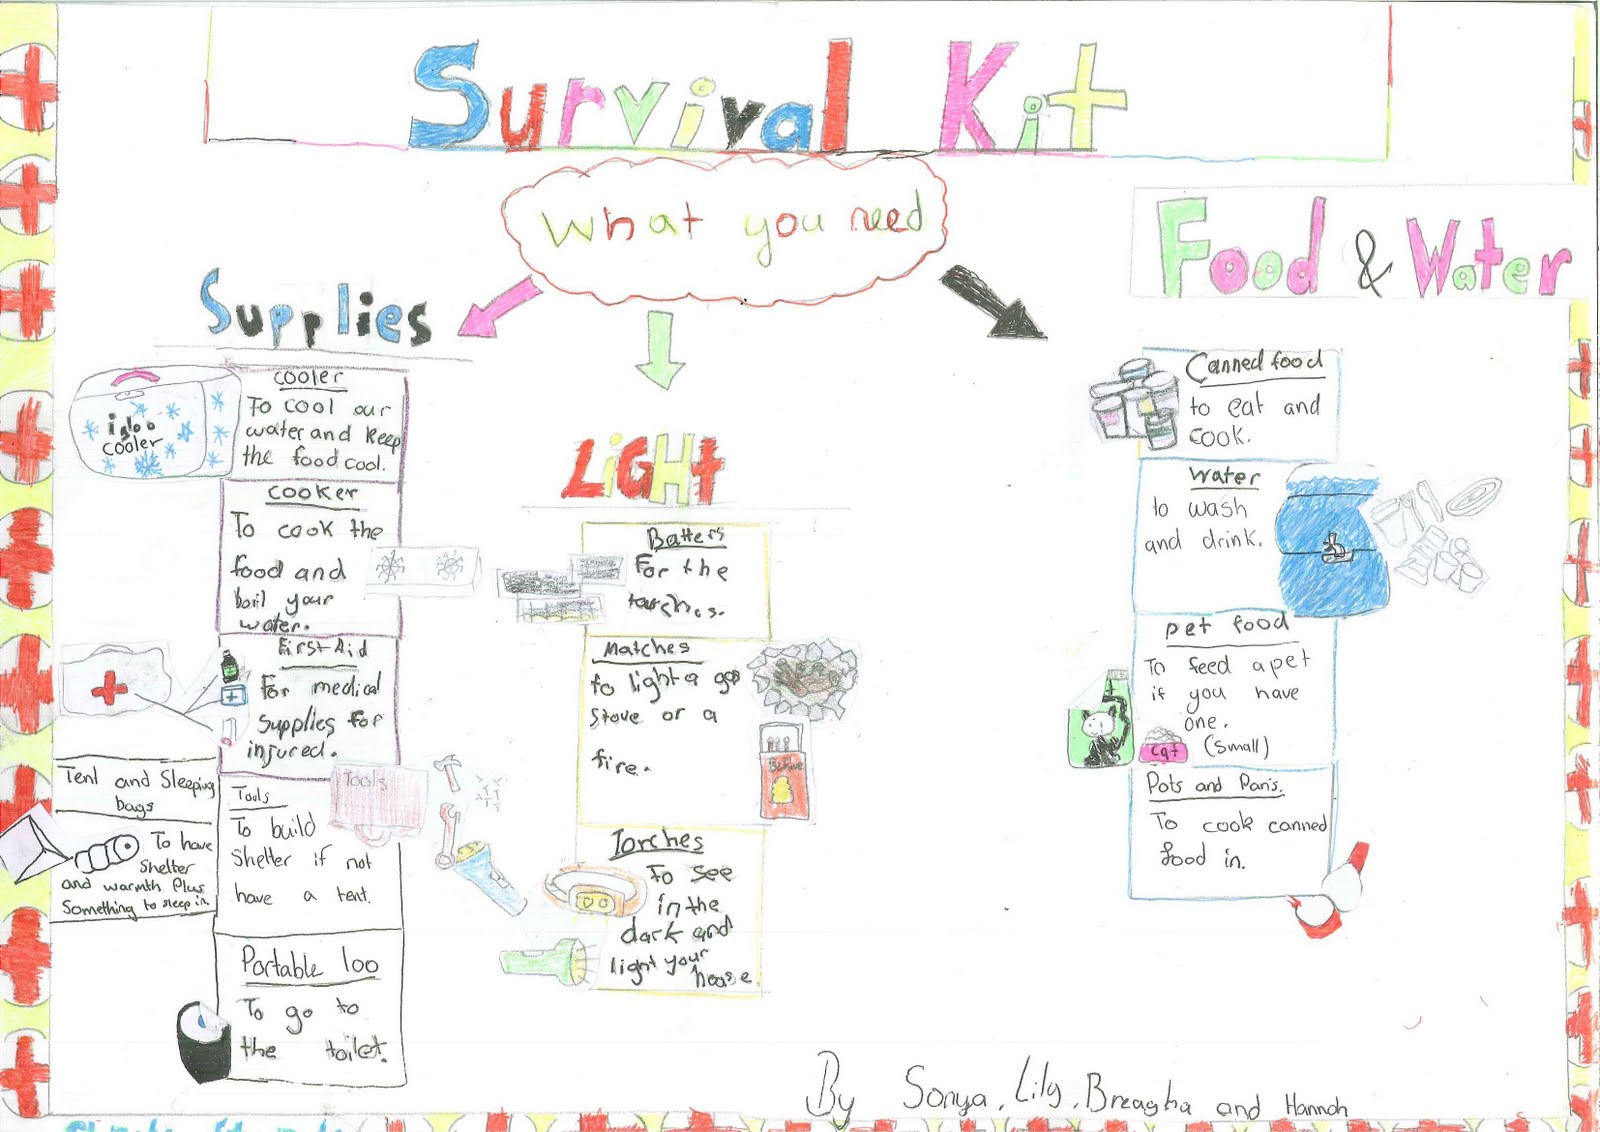 Survival Kit
What you need
Supplies
igloo
cooler
cooler
To cool our
water and keep
the food cool.
cooker
To cook the
food and
boil your
water.
First-Aid
For medical
supplies for
injured.
Tent and Sleeping
bags
To have
shelter
and warmth Plus
Something to sleep in.
Tools
Tools
To build
shelter if not
have a tent.
Portable loo
To go to
the toilet.
LiGHt
Batters
For the
torches.
Matches
to light a gas
stove or a
fire.
Beehive
Torches
To see
in the
dark and
light your
house.
Food & Water
Canned food
to eat and
cook.
water
to wash
and drink.
pet food
To feed a pet
if you have
one.
(small)
Cat
Pots and Pan's.
To cook canned
food in.
By Sonya, Lily, Breagha and Hannah